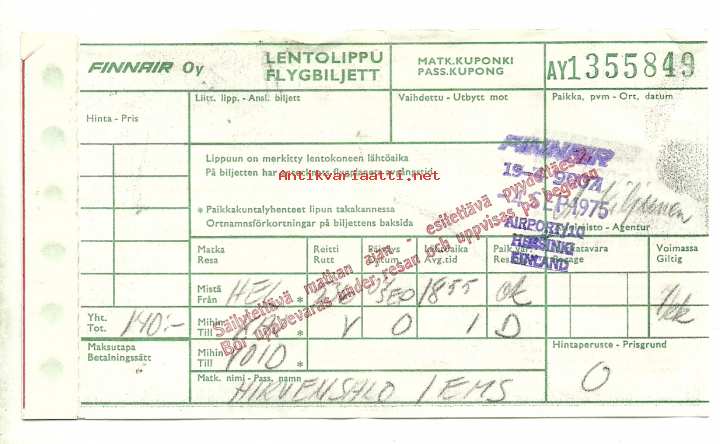 FINNAIR Oy
LENTOLIPPU
FLYGBILJETT
MATK.KUPONKI
PASS.KUPONG
AY1355849
Hinta - Pris
Liitt. lipp. - Ansl. biljett
Vaihdettu - Utbytt mot
Paikka, pvm - Ort, datum
Lippuun on merkitty lentokoneen lähtöaika
På biljetten har
Antikvariaatti.net
FINNAIR
1975
AIRPORT/10
HELSINKI
FINLAND
* Paikkakuntalyhenteet lipun takakannessa
Ortnamnsförkortningar på biljettens baksida
- Agentur
Säilytettävä matkan ajan - esitettävä pyydettäessä
Bör uppbevaras under resan och uppvisas på begäran
Matka
Resa
Reitti
Rutt
Päiväys
Datum
Lähtöaika
Avg.tid
Voimassa
Giltig
Mistä
Från
HEL *
1855
OK
Yht.
Tot.
140:-
Mihin
Till
*
V O I D
Maksutapa
Betalningssätt
Mihin
Till
VOID *
Hintaperuste - Prisgrund
O
Matk. nimi - Pass. namn
HIRVENSALO / EMS